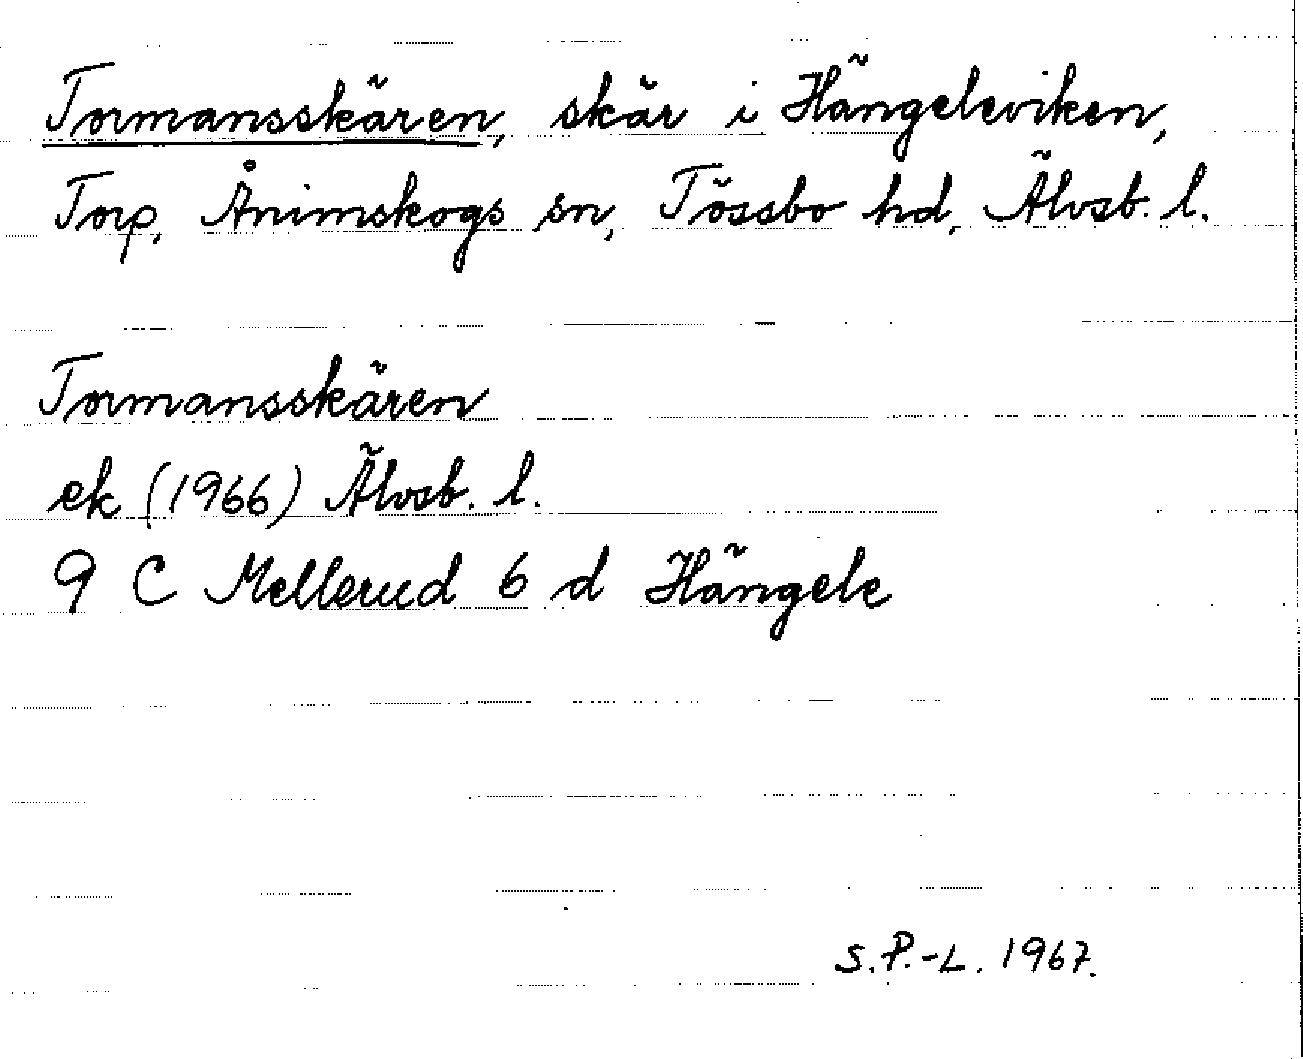 Tormansskären, skär i Hängeleviken,
Torp, Ånimskogs sn, Tössbo hd, Älvsb. l.
Tormansskären
ek (1966) Älvsb. l.
9 C Mellerud 6 d Hängele
S.P.-L. 1967.